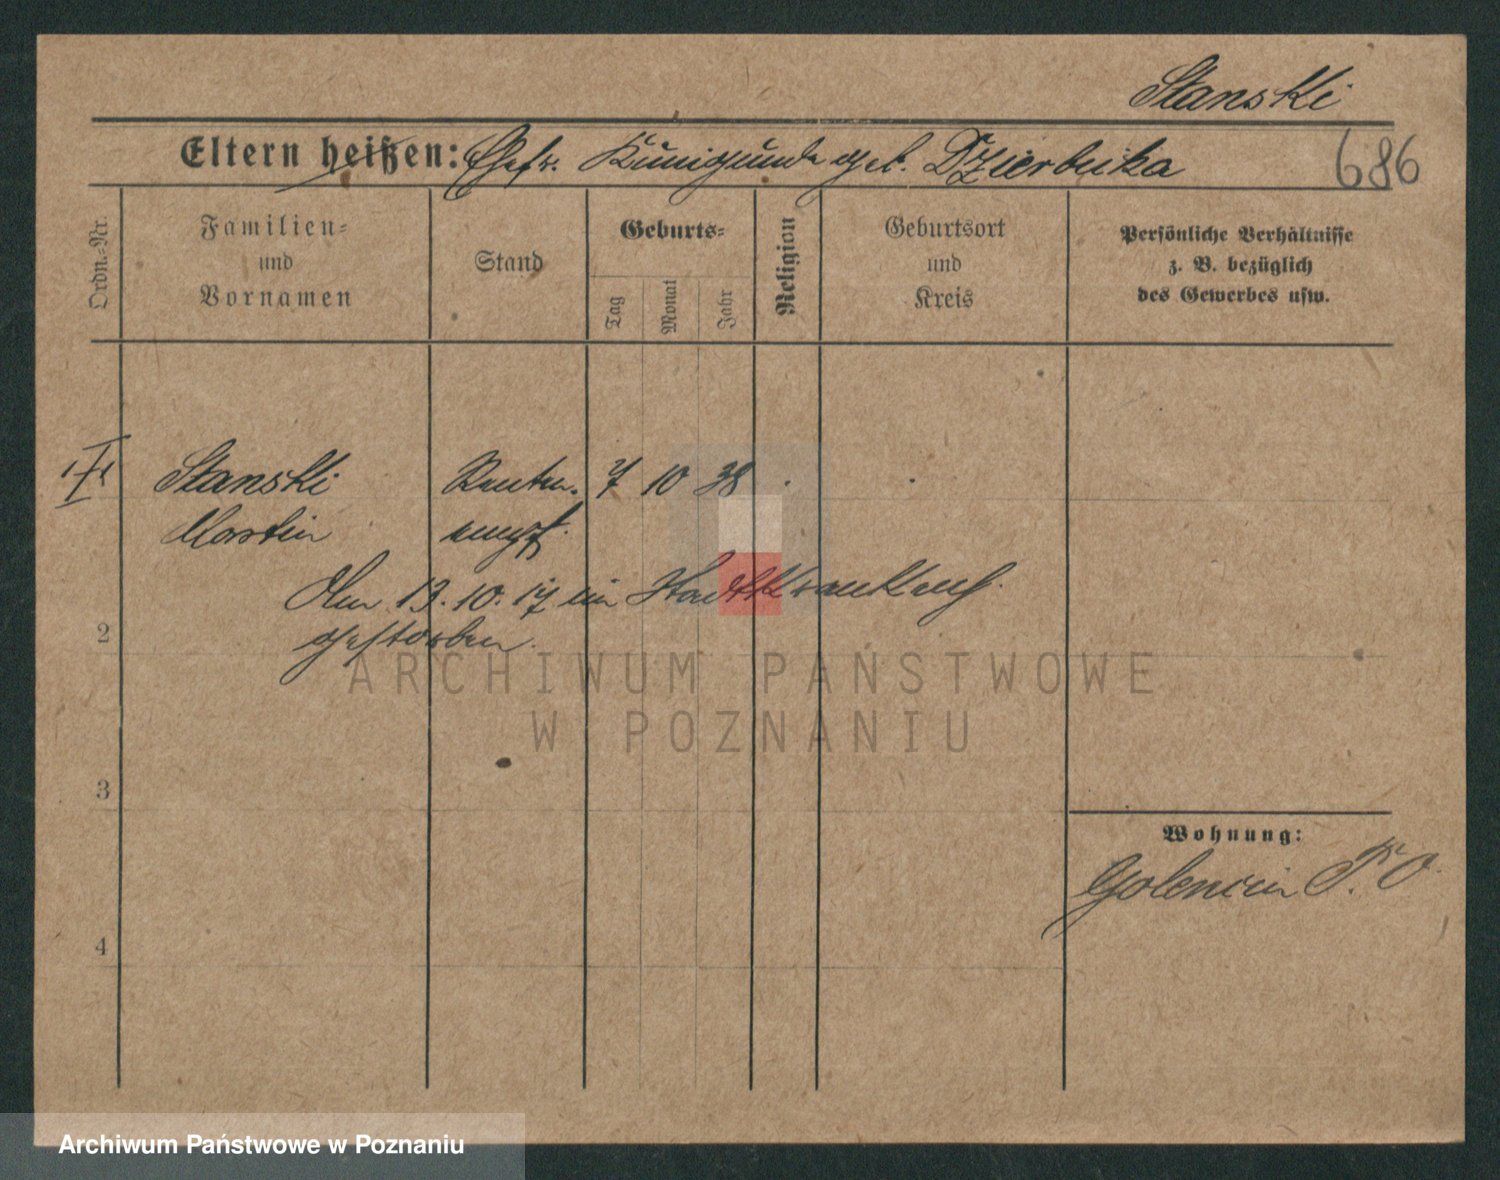 Stanski
Eltern heißen: Ehefr. Kunigunde geb. Dzierbicka
686
Ordn.-Nr.
Familien-
und
Vornamen
Stand
Geburts-
Tag
Monat
Jahr
Religion
Geburtsort
und
Kreis
Persönliche Verhältnisse
z. B. bezüglich
des Gewerbes usw.
Stanski Renten- 7 10 38
Martin empf.
Am 13.10.17 im Stadtkrankenh.
gestorben.
2
ARCHIWUM PAŃSTWOWE
W POZNANIU
3
Wohnung:
Golencin
4
Archiwum Państwowe w Poznaniu